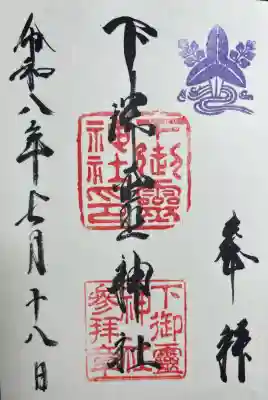 奉拝
下御霊神社
下御靈神社印
下御靈神社参拝章
令和八年七月十八日